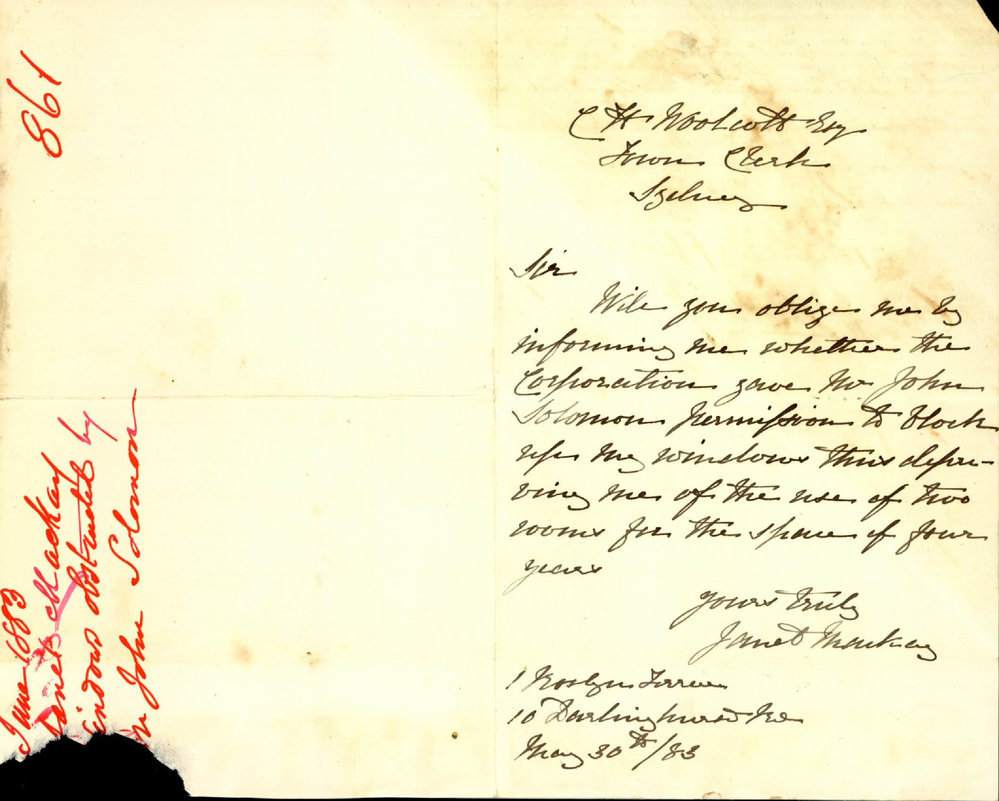 861
June 1883
Janet Mackay
Windows obstructed by
Mr John Solomon
C H Woolcott Esq
Town Clerk
Sydney
Sir
Will you oblige me by
informing me whether the
Corporation gave Mr John
Solomon permission to block
up my windows thus depri-
ving me of the use of two
rooms for the space of four
years
Yours truly
Janet Mackay
1 Roslyn Terrace
10 Darlinghurst Rd
May 30th/83